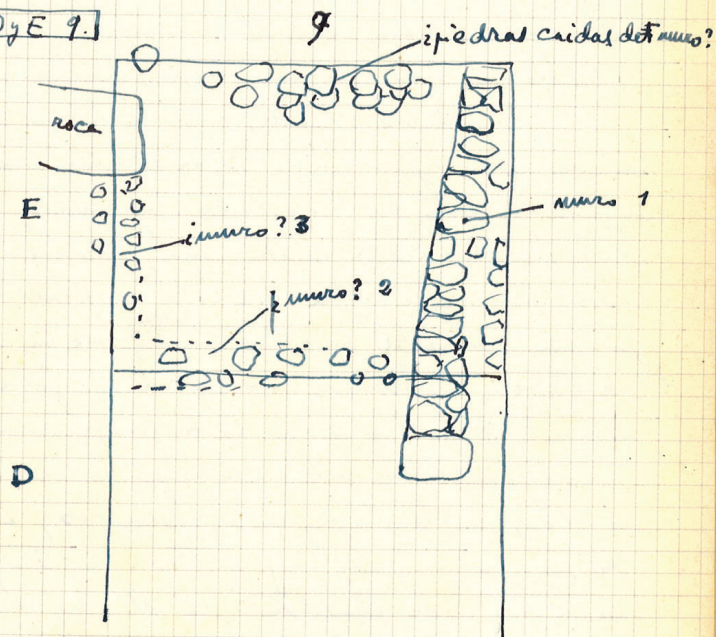 D y E 9.
9
¿piedras caidas del muro?
roca
E
muro 1
¿muro? 3
¿muro? 2
D